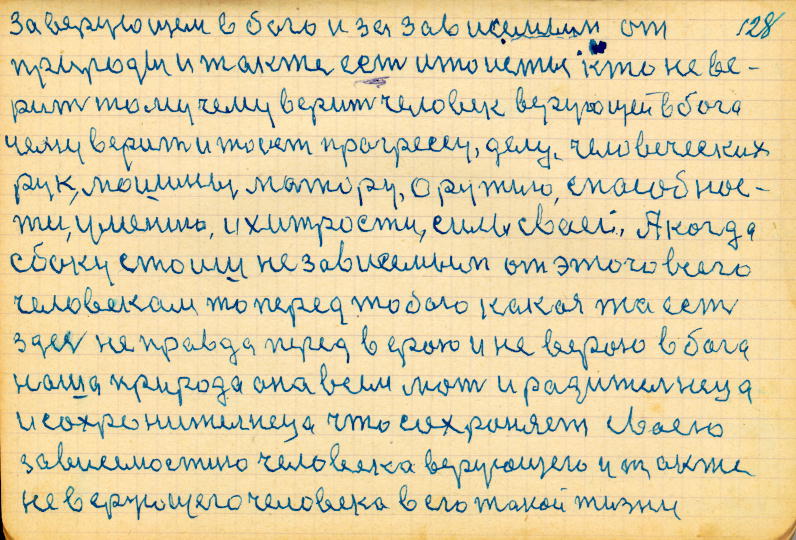 За верующем в бога и за зависемым от 128
природы и также ест и то исты кто не ве-
рит тому чему верит человек верующей в бога
чему верит и тоест прогрессу, делу, человеческих
рук, машины, матору, оружию, способнос-
ти, уменио, и хитрости, силы сваей, А когда
сбоку стоиш не зависемым от этого всего
человекам то перед тобою какая та ест
здес не правда перед верою и не верою в бога
наша природа она всем мот и радителнеца
и сохронителнеца что сохроняет сваею
зависемостию человека верующего и также
не верующего человека в его такой жизни